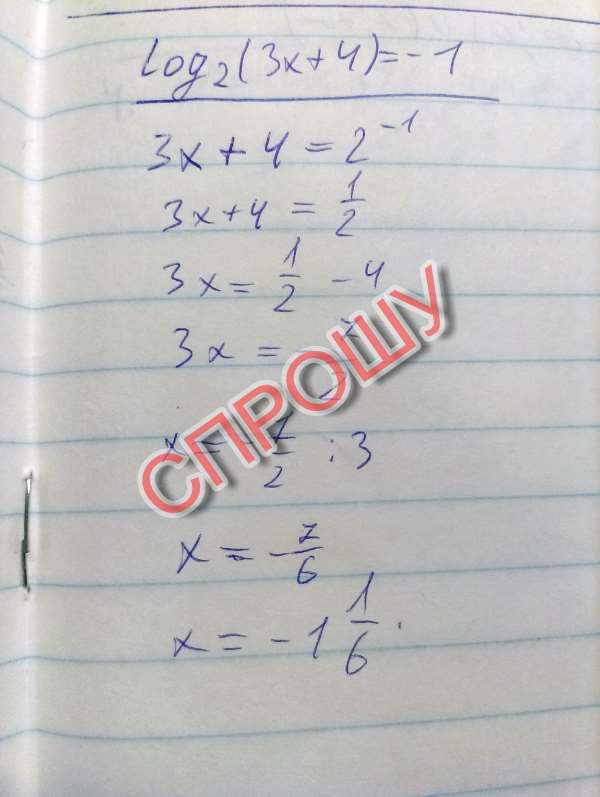 log₂(3x+4)=-1
3x+4=2⁻¹
3x+4=1/2
3x=1/2-4
3x=-7/2
СПРОШУ
x=-7/2:3
x=-7/6
x=-1 1/6.